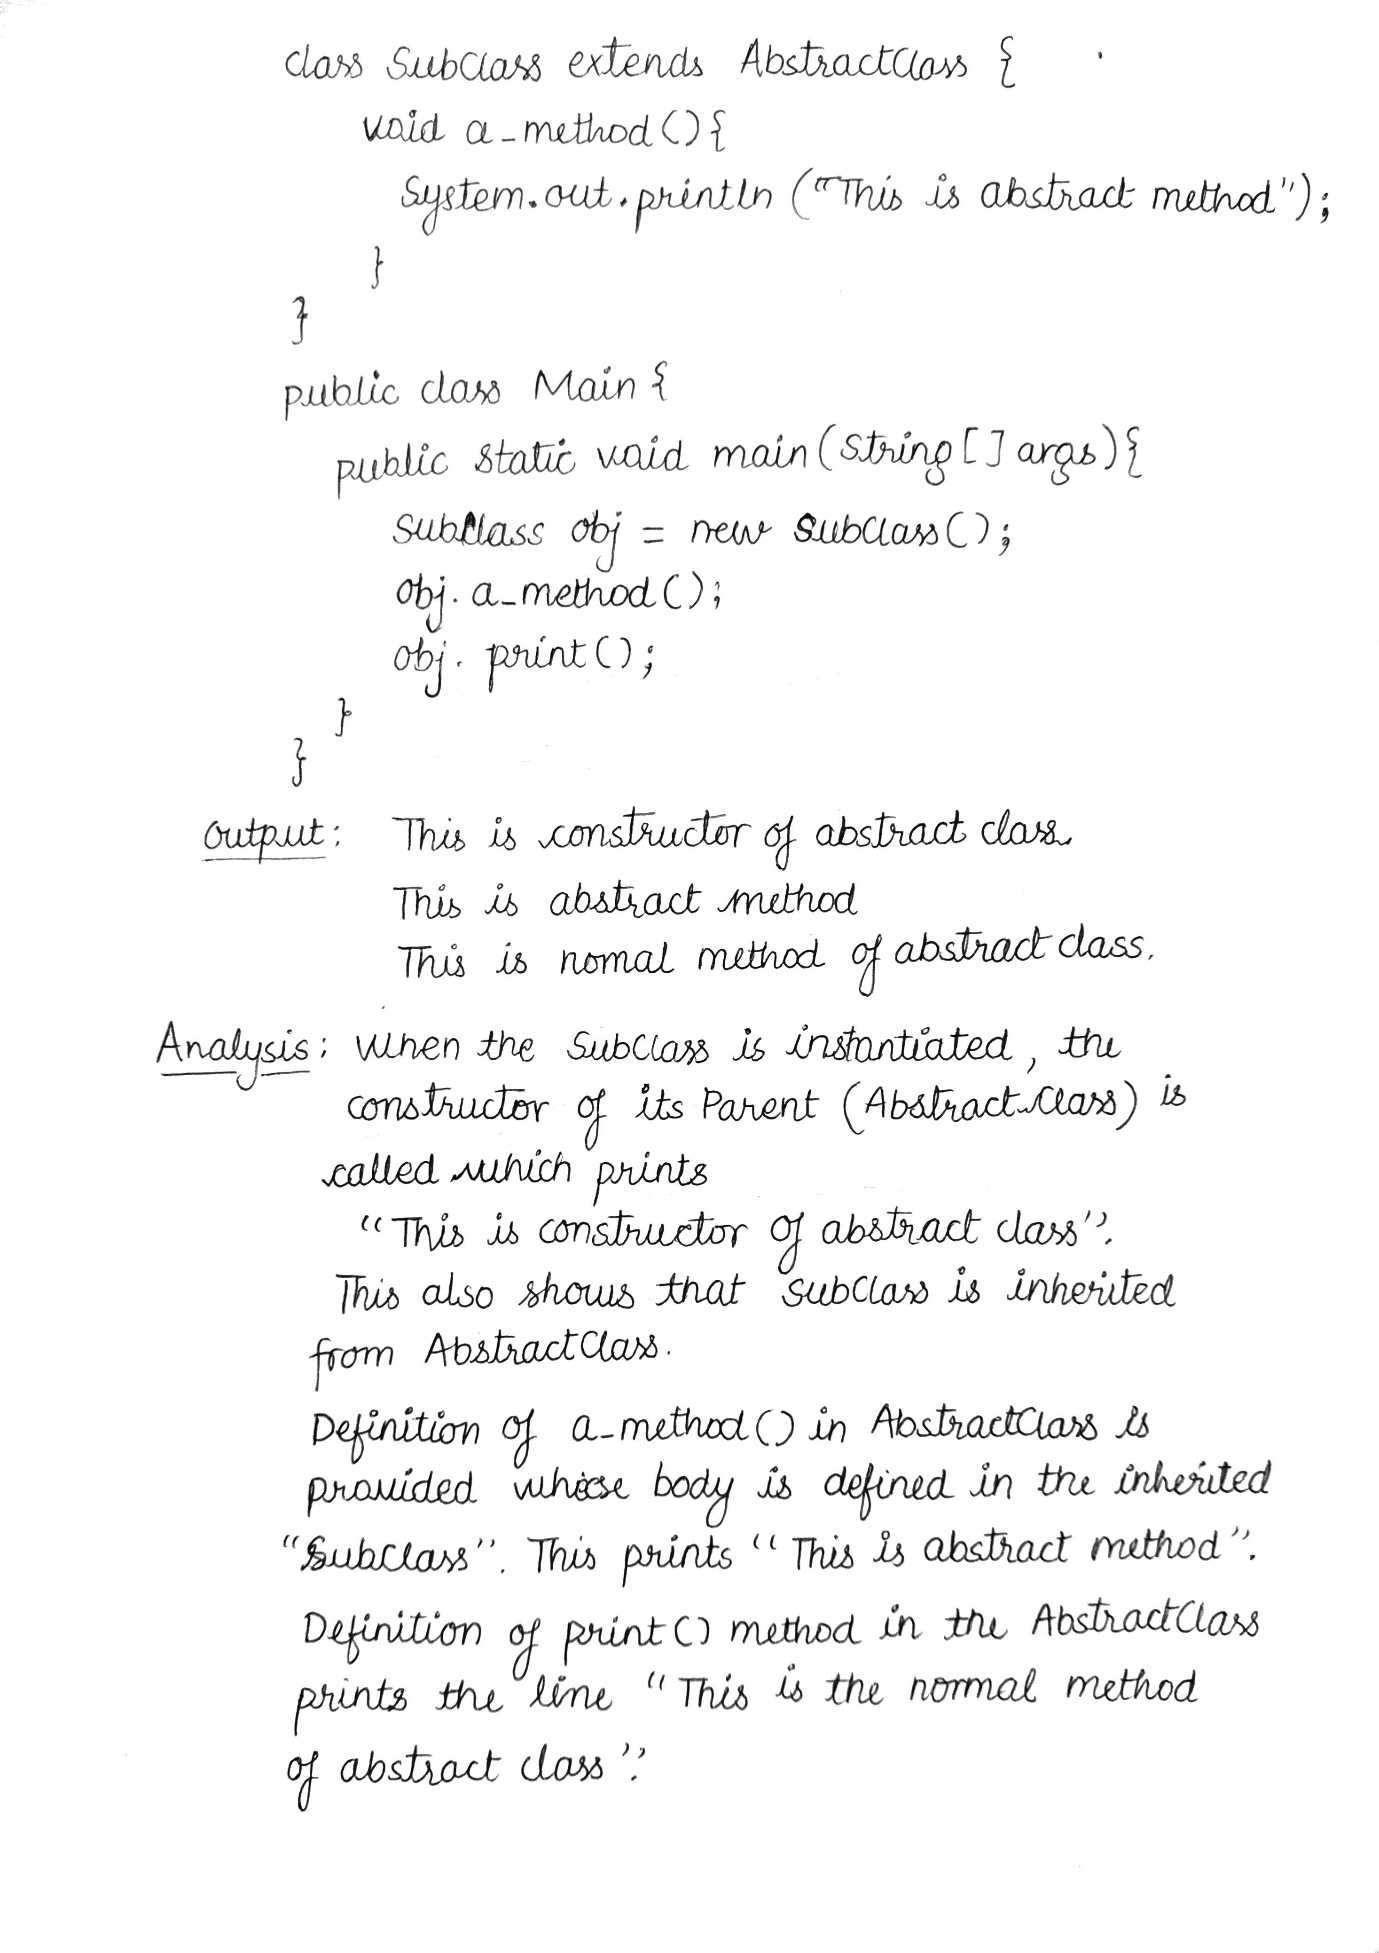 class SubClass extends AbstractClass {
void a_method(){
System.out.println ("This is abstract method");
}
}
public class Main {
public static void main(String [] args){
SubClass obj = new SubClass();
obj. a_method();
obj. print();
}
}
Output: This is constructor of abstract class
This is abstract method
This is nomal method of abstract class.
Analysis: When the SubClass is instantiated, the
constructor of its Parent (AbstractClass) is
called which prints
"This is constructor of abstract class".
This also shows that SubClass is inherited
from AbstractClass.
Definition of a_method() in AbstractClass is
provided whose body is defined in the inherited
"SubClass". This prints "This is abstract method".
Definition of print() method in the AbstractClass
prints the line "This is the normal method
of abstract class".